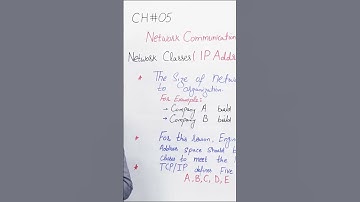 CH#05
Network Communication
Network Classes/ IP Addr
* The Size of Network
to organization.
For Example:
→ Company A build
→ Company B build
* For this reason, Engin
Address space should b
Classes to meet the
* TCP/IP defines Five
A, B, C, D, E